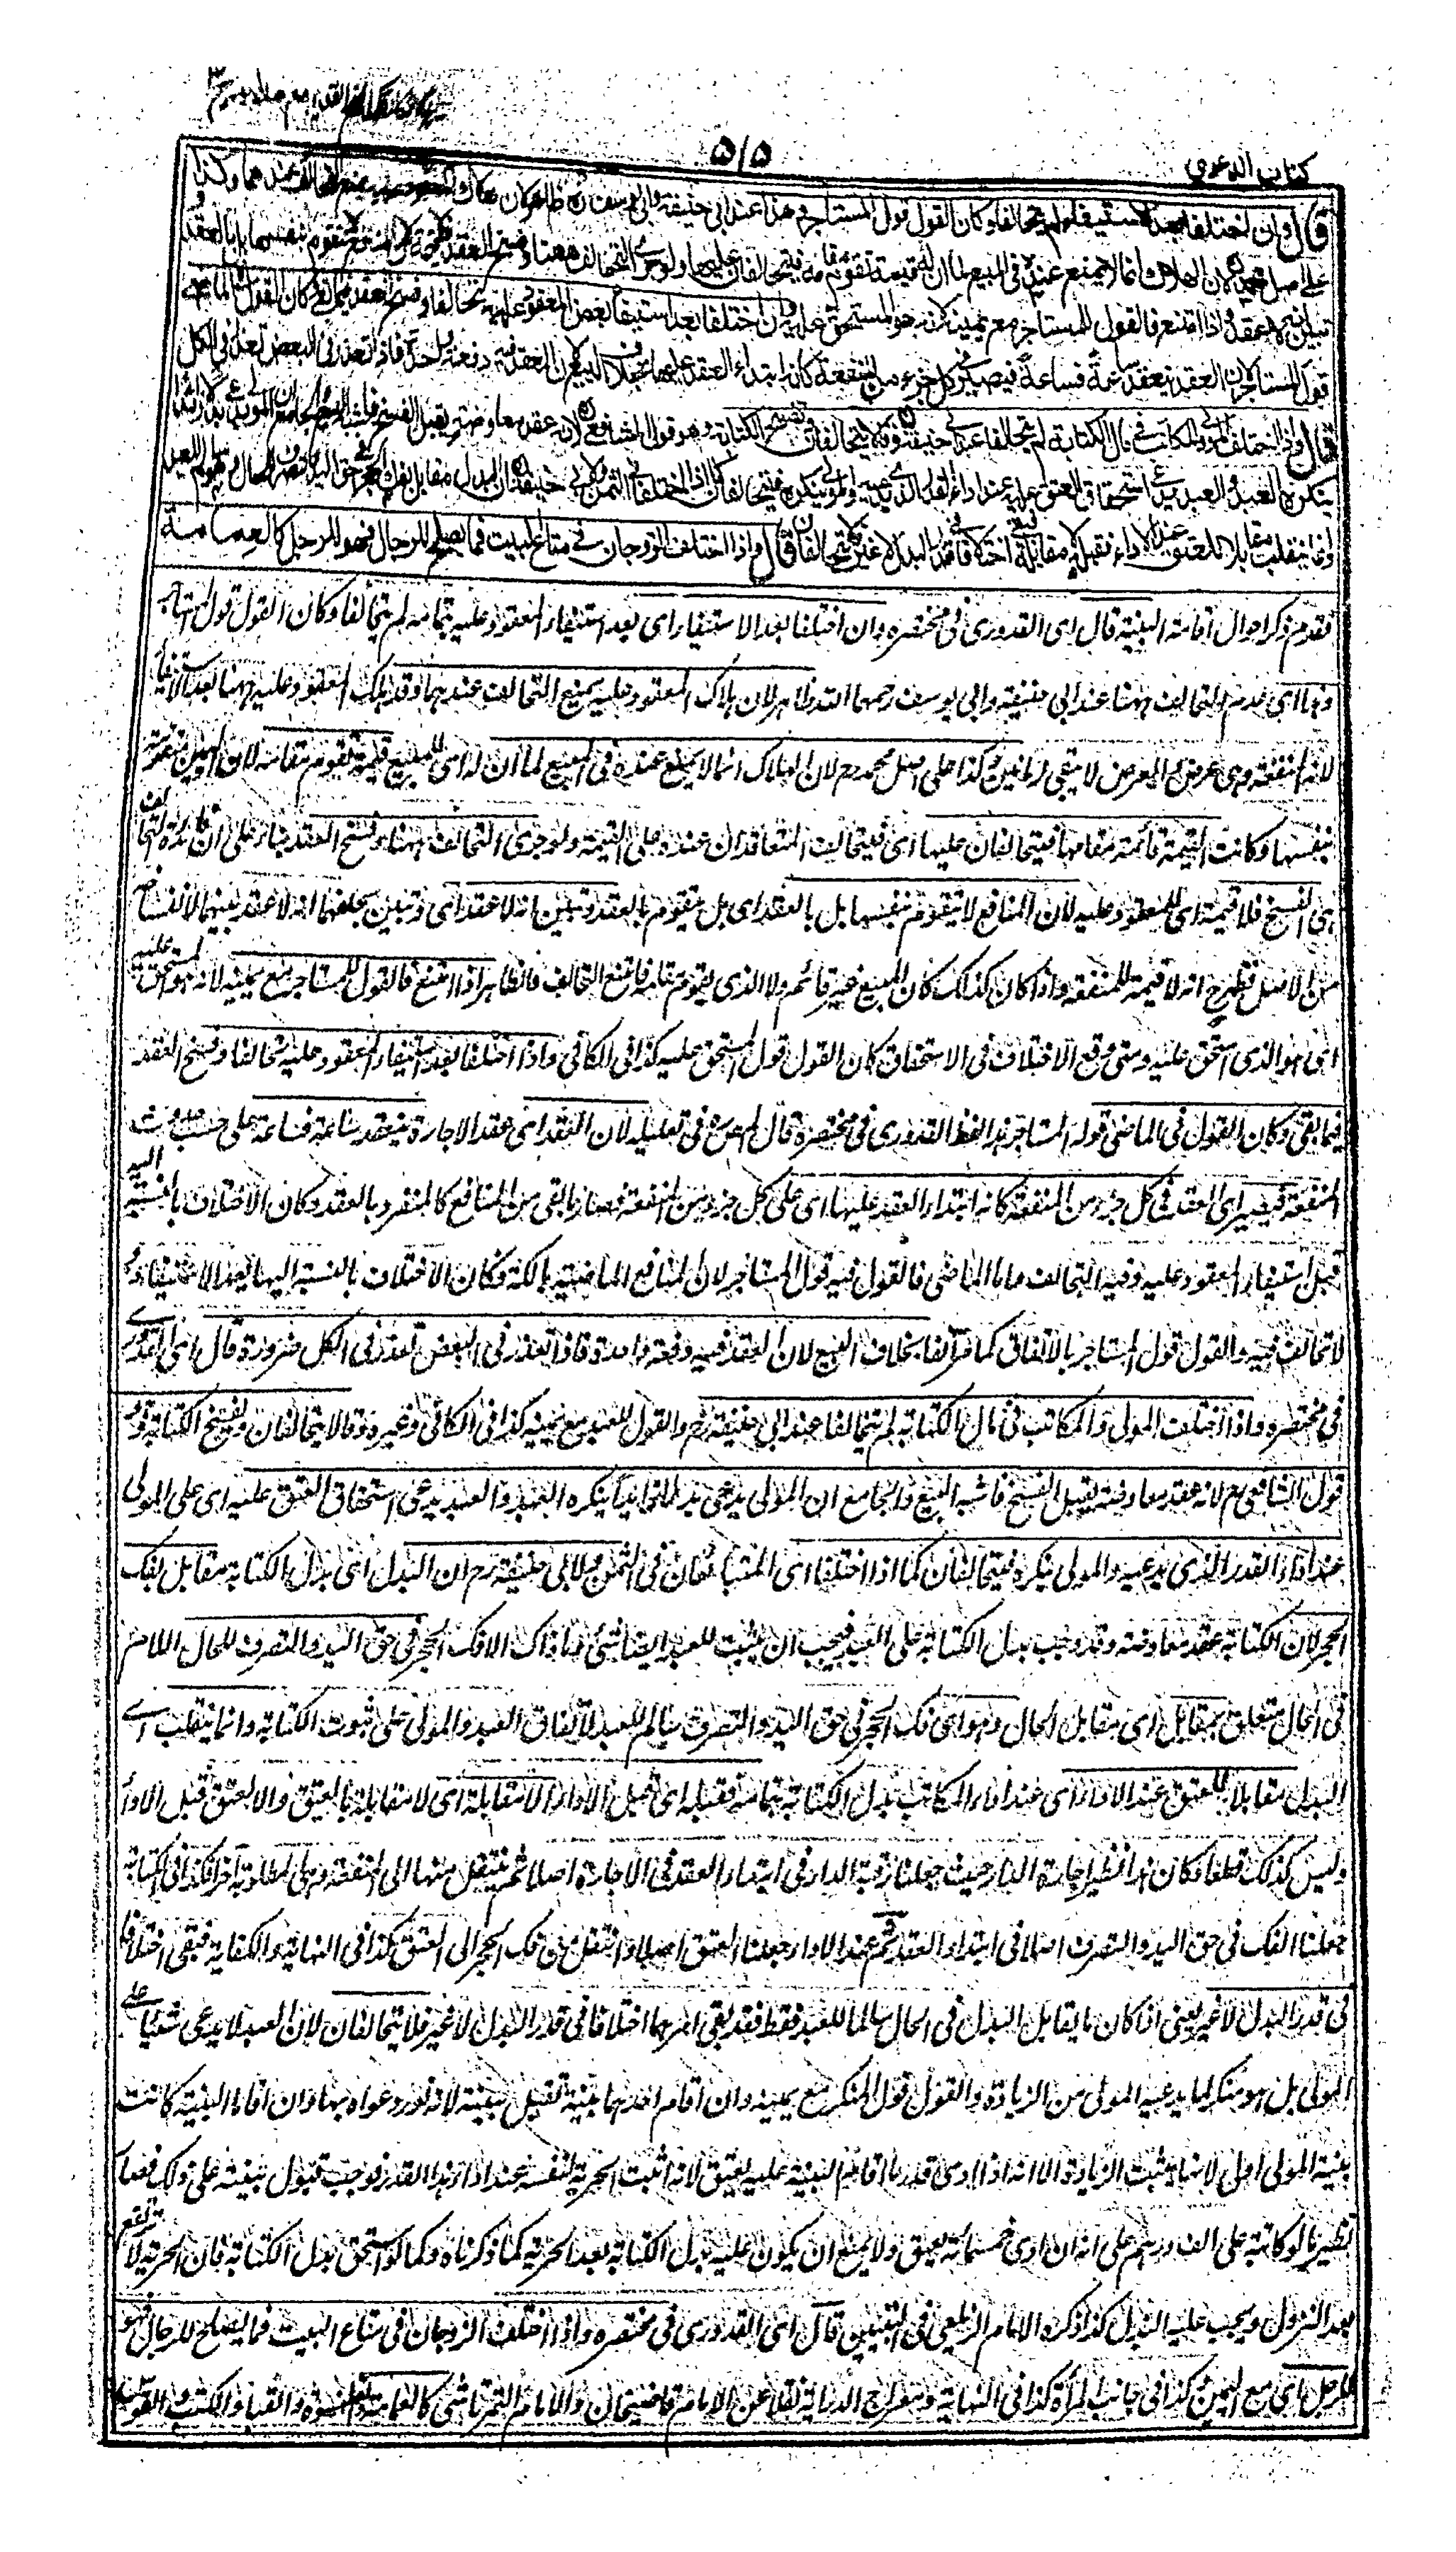 كتاب الدعوى
٥١٥
قال وان اختلفا بعد الاستيفاء لم يتحالفا وكان القول قول المستاجر وهذا عند ابي حنيفة وابي يوسف ظاهر لان هلاك المعقود عليه يمنع التحالف عندهما وكذا
على اصل محمد لان الهلاك انما لا يمنع عنده في المبيع لما ان له قيمة تقوم مقامه فيتحالفان عليها ولو جرى التحالف ههنا وفسخ العقد فلا قيمة لان المنافع لا تتقوم بنفسها بل بالعقد و
تبين انه لا عقد واذا امتنع فالقول للمستاجر مع يمينه لانه هو المستحق عليه وان اختلفا بعد استيفاء بعض المعقود عليه تحالفا وفسخ العقد فيما بقي وكان القول في الماضي
قول المستاجر لان العقد ينعقد ساعة فساعة فيصير في كل جزء من المنفعة كان ابتداء العقد عليها بخلاف البيع لان العقد فيه دفعة واحدة فاذا تعذر في البعض تعذر في الكل
قال واذا اختلف المولى والمكاتب في مال الكتابة لم يتحالفا عند ابي حنيفة وقالا يتحالفان وتفسخ الكتابة وهو قول الشافعي لانه عقد معاوضة يقبل الفسخ فاشبه البيع والجامع ان المولى يدعي بدلا زائدا
ينكره العبد والعبد يدعي استحقاق العتق عليه عند اداء القدر الذي يدعيه والمولى ينكره فيتحالفان كما اذا اختلفا في الثمن ولابي حنيفة ان البدل مقابل بفك الحجر في حق اليد والتصرف للحال وهو سالم للعبد
وانما ينقلب مقابلا للعتق عند الاداء فقبله لا مقابلة فبقي اختلافا في قدر البدل لا غير فلا يتحالفان قال واذا اختلف الزوجان في متاع البيت فما يصلح للرجال فهو للرجل كالعمامة
تقدم ذكر احوال اقامة البينة قال اى القدوري في مختصره وان اختلفا بعد الاستيفاء اى بعد استيفاء المعقود عليه بتمامه لم يتحالفا وكان القول قول المستاجر
وهذا اى عدم التحالف ههنا عند ابي حنيفة وابي يوسف رحمهما الله ظاهر لان هلاك المعقود عليه يمنع التحالف عندهما وقد هلك المعقود عليه ههنا بعد الاستيفاء
لانه المنفعة وهي عرض والعرض لا يبقى زمانين وكذا على اصل محمد رح لان الهلاك انما لا يمنع عنده في المبيع لما ان له اى للمبيع قيمة تقوم مقامه لان العين متقومة
بنفسها وكانت القيمة قائمة مقامها فيتحالفان عليها اى فيتحالف المتعاقدان عنده على القيمة ولو جرى التحالف ههنا وفسخ العقد بناء على ان فائدة التحالف
هي الفسخ فلا قيمة اى للمعقود عليه لان المنافع لا تتقوم بنفسها بل بالعقد اى بل يتقوم بالعقد وتبين انه لا عقد اى وتبين بحلفهما انه لا عقد بينهما لانفساخه
من الاصل فظهر انه لا قيمة للمنفعة واذا كان كذلك كان المبيع غير قائم ولا الذي يقوم مقامه فامتنع التحالف فالظاهر اذا امتنع فالقول للمستاجر مع يمينه لانه هو المستحق عليه
اى هو الذي استحق عليه ومتى وقع الاختلاف في الاستحقاق كان القول قول المستحق عليه كذا في الكافي واذا اختلفا بعد استيفاء المعقود عليه تحالفا وفسخ العقد
فيما بقي وكان القول في الماضي قول المستاجر هذا لفظ القدوري في مختصره قال المص رح في تعليله لان العقد اى عقد الاجارة ينعقد ساعة فساعة على حسب حدوث
المنفعة فيصير اى العقد في كل جزء من المنفعة كانه ابتداء العقد عليها اى على كل جزء من المنفعة فصار ما بقي من المنافع كالمنفرد بالعقد وكان الاختلاف بالنسبة اليه
قبل استيفاء المعقود عليه وفيه التحالف واما الماضي فالقول فيه قول المستاجر لان المنافع الماضية هالكة فكان الاختلاف بالنسبة اليها بعد الاستيفاء و
لا تحالف فيه والقول قول المستاجر بالاتفاق كما مر آنفا بخلاف البيع لان العقد فيه دفعة واحدة فاذا تعذر في البعض تعذر في الكل ضرورة قال اى القدوري
في مختصره واذا اختلف المولى والمكاتب في مال الكتابة لم يتحالفا عند ابي حنيفة رح والقول للعبد مع يمينه كذا في الكافي وغيره وقالا يتحالفان وتفسخ الكتابة وهو
قول الشافعي رح لانه عقد معاوضة يقبل الفسخ فاشبه البيع والجامع ان المولى يدعي بدلا زائدا ينكره العبد والعبد يدعي استحقاق العتق عليه اى على المولى
عند اداء القدر الذي يدعيه والمولى ينكره فيتحالفان كما اذا اختلفا اى المتبايعان في الثمن ولابي حنيفة رح ان البدل اى بدل الكتابة مقابل بفك
الحجر لان الكتابة عقد معاوضة وقد وجب بدل الكتابة على العبد فيجب ان يثبت للعبد ايضا شيء وما ذاك الا فك الحجر في حق اليد والتصرف للحال اللام
في الحال متعلق بمقابل اى مقابل للحال وهو اى فك الحجر في حق اليد والتصرف سالم للعبد لاتفاق العبد والمولى على ثبوت الكتابة وانما ينقلب اى
البدل مقابلا للعتق عند الاداء اى عند اداء المكاتب بدل الكتابة بتمامه فقبله اى قبل الاداء لا مقابلة اى لا مقابلة بالعتق والا لعتق قبل الاداء
وليس كذلك قطعا وكان هذا نظير اجارة الدار حيث جعلنا رقبة الدار في ابتداء العقد في الاجارة اصلا ثم ينتقل منها الى المنفعة وهي المطلوبة آخرا فكذا في الكتابة
جعلنا الفك في حق اليد والتصرف اصلا في ابتداء العقد ثم عند الاداء جعلنا العتق اصلا وانتقل من فك الحجر الى العتق كذا في النهاية والكفاية فبقي اختلافا
في قدر البدل لا غير يعني اذا كان ما يقابل البدل في الحال سالما للعبد فقط فقد بقي امرهما اختلافا في قدر البدل لا غير فلا يتحالفان لان العبد لا يدعي شيئا على
المولى بل هو منكر لما يدعيه المولى من الزيادة والقول قول المنكر مع يمينه وان اقام احدهما بينة تقبل بينته لانه نور دعواه بها وان اقاما البينة كانت
بينة المولى اولى لانها تثبت الزيادة الا انه اذا ادى قدر ما اقام البينة عليه يعتق لانه اثبت الحرية لنفسه عند اداء هذا القدر فوجب قبول بينته على ذلك فصار
نظير ما لو كاتبه على الف درهم على انه ان ادى خمسمائة يعتق ولا يمنع ان يكون عليه بدل الكتابة بعد الحرية كما ذكرناه وكما لو استحق بدل الكتابة فان الحرية لا ترتفع
بعد النزول ويجب عليه البدل كذا ذكره الامام الزيلعي في التبيين قال اى القدوري في مختصره واذا اختلف الزوجان في متاع البيت فما يصلح للرجال فهو
للرجل اى مع اليمين كذا في جانب المرأة كذا في النهاية ومعراج الدراية نقلا عن الامام قاضيخان والامام التمرتاشي كالعمامة والقلنسوة والقباء والكتب والقوس